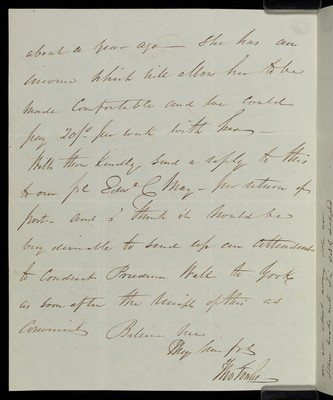 about a year ago — She has an
income which will allow her to be
made Comfortable and we could
pay 20/- per week with her —
Will thou kindly send a reply to this
to our fd Edwd C May — per return of
post — and I think it would be
very desirable to send up an attendant
to conduct Prudence Wall to York
as soon after the receipt of this as
convenient Believe me
Thy sinc fd
Thos